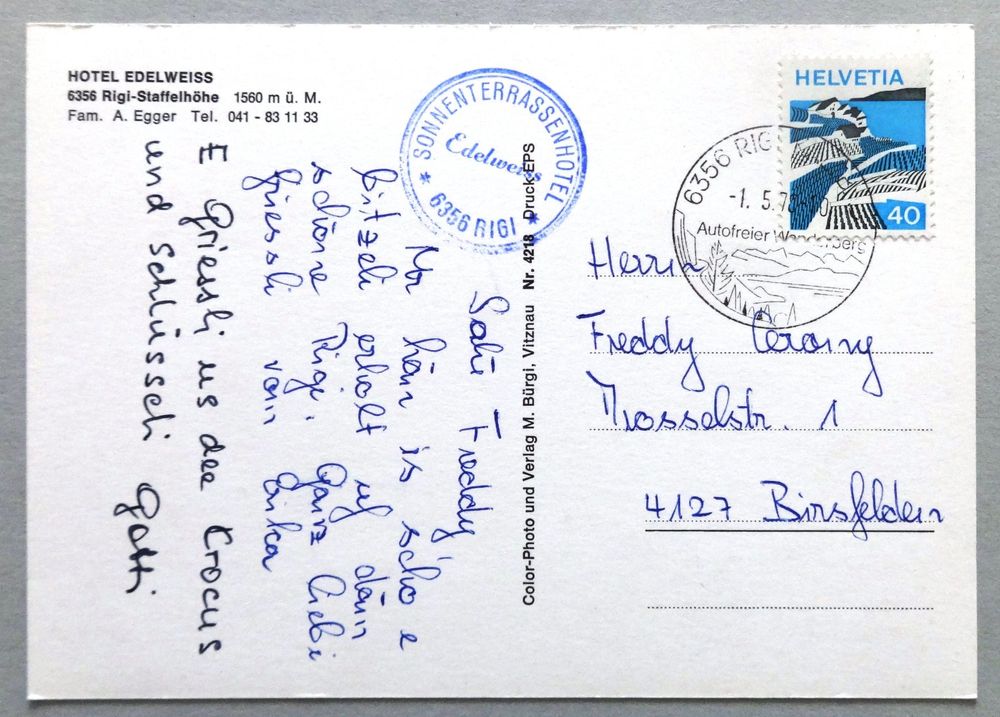 HOTEL EDELWEISS
6356 Rigi-Staffelhöhe 1560 m ü. M.
Fam. A. Egger Tel. 041 - 83 11 33
SONNENTERRASSENHOTEL
Edelweiss
* 6356 RIGI *
HELVETIA
40
6356 RIGI
-1. 5. 7
Autofreier Wanderberg
Color-Photo und Verlag M. Bürgi, Vitznau Nr. 4218 Druck EPS
Salü Freddy,
Mr hän is scho e
bitzeli erholt uf dänn
schöne Rigi. Ganz liebi
Griessli vonn Erika
E Griessli us dee Crocus
und Schlüsseli Gotti
Herrn
Freddy
Mosselstr. 1
4127 Birsfelden